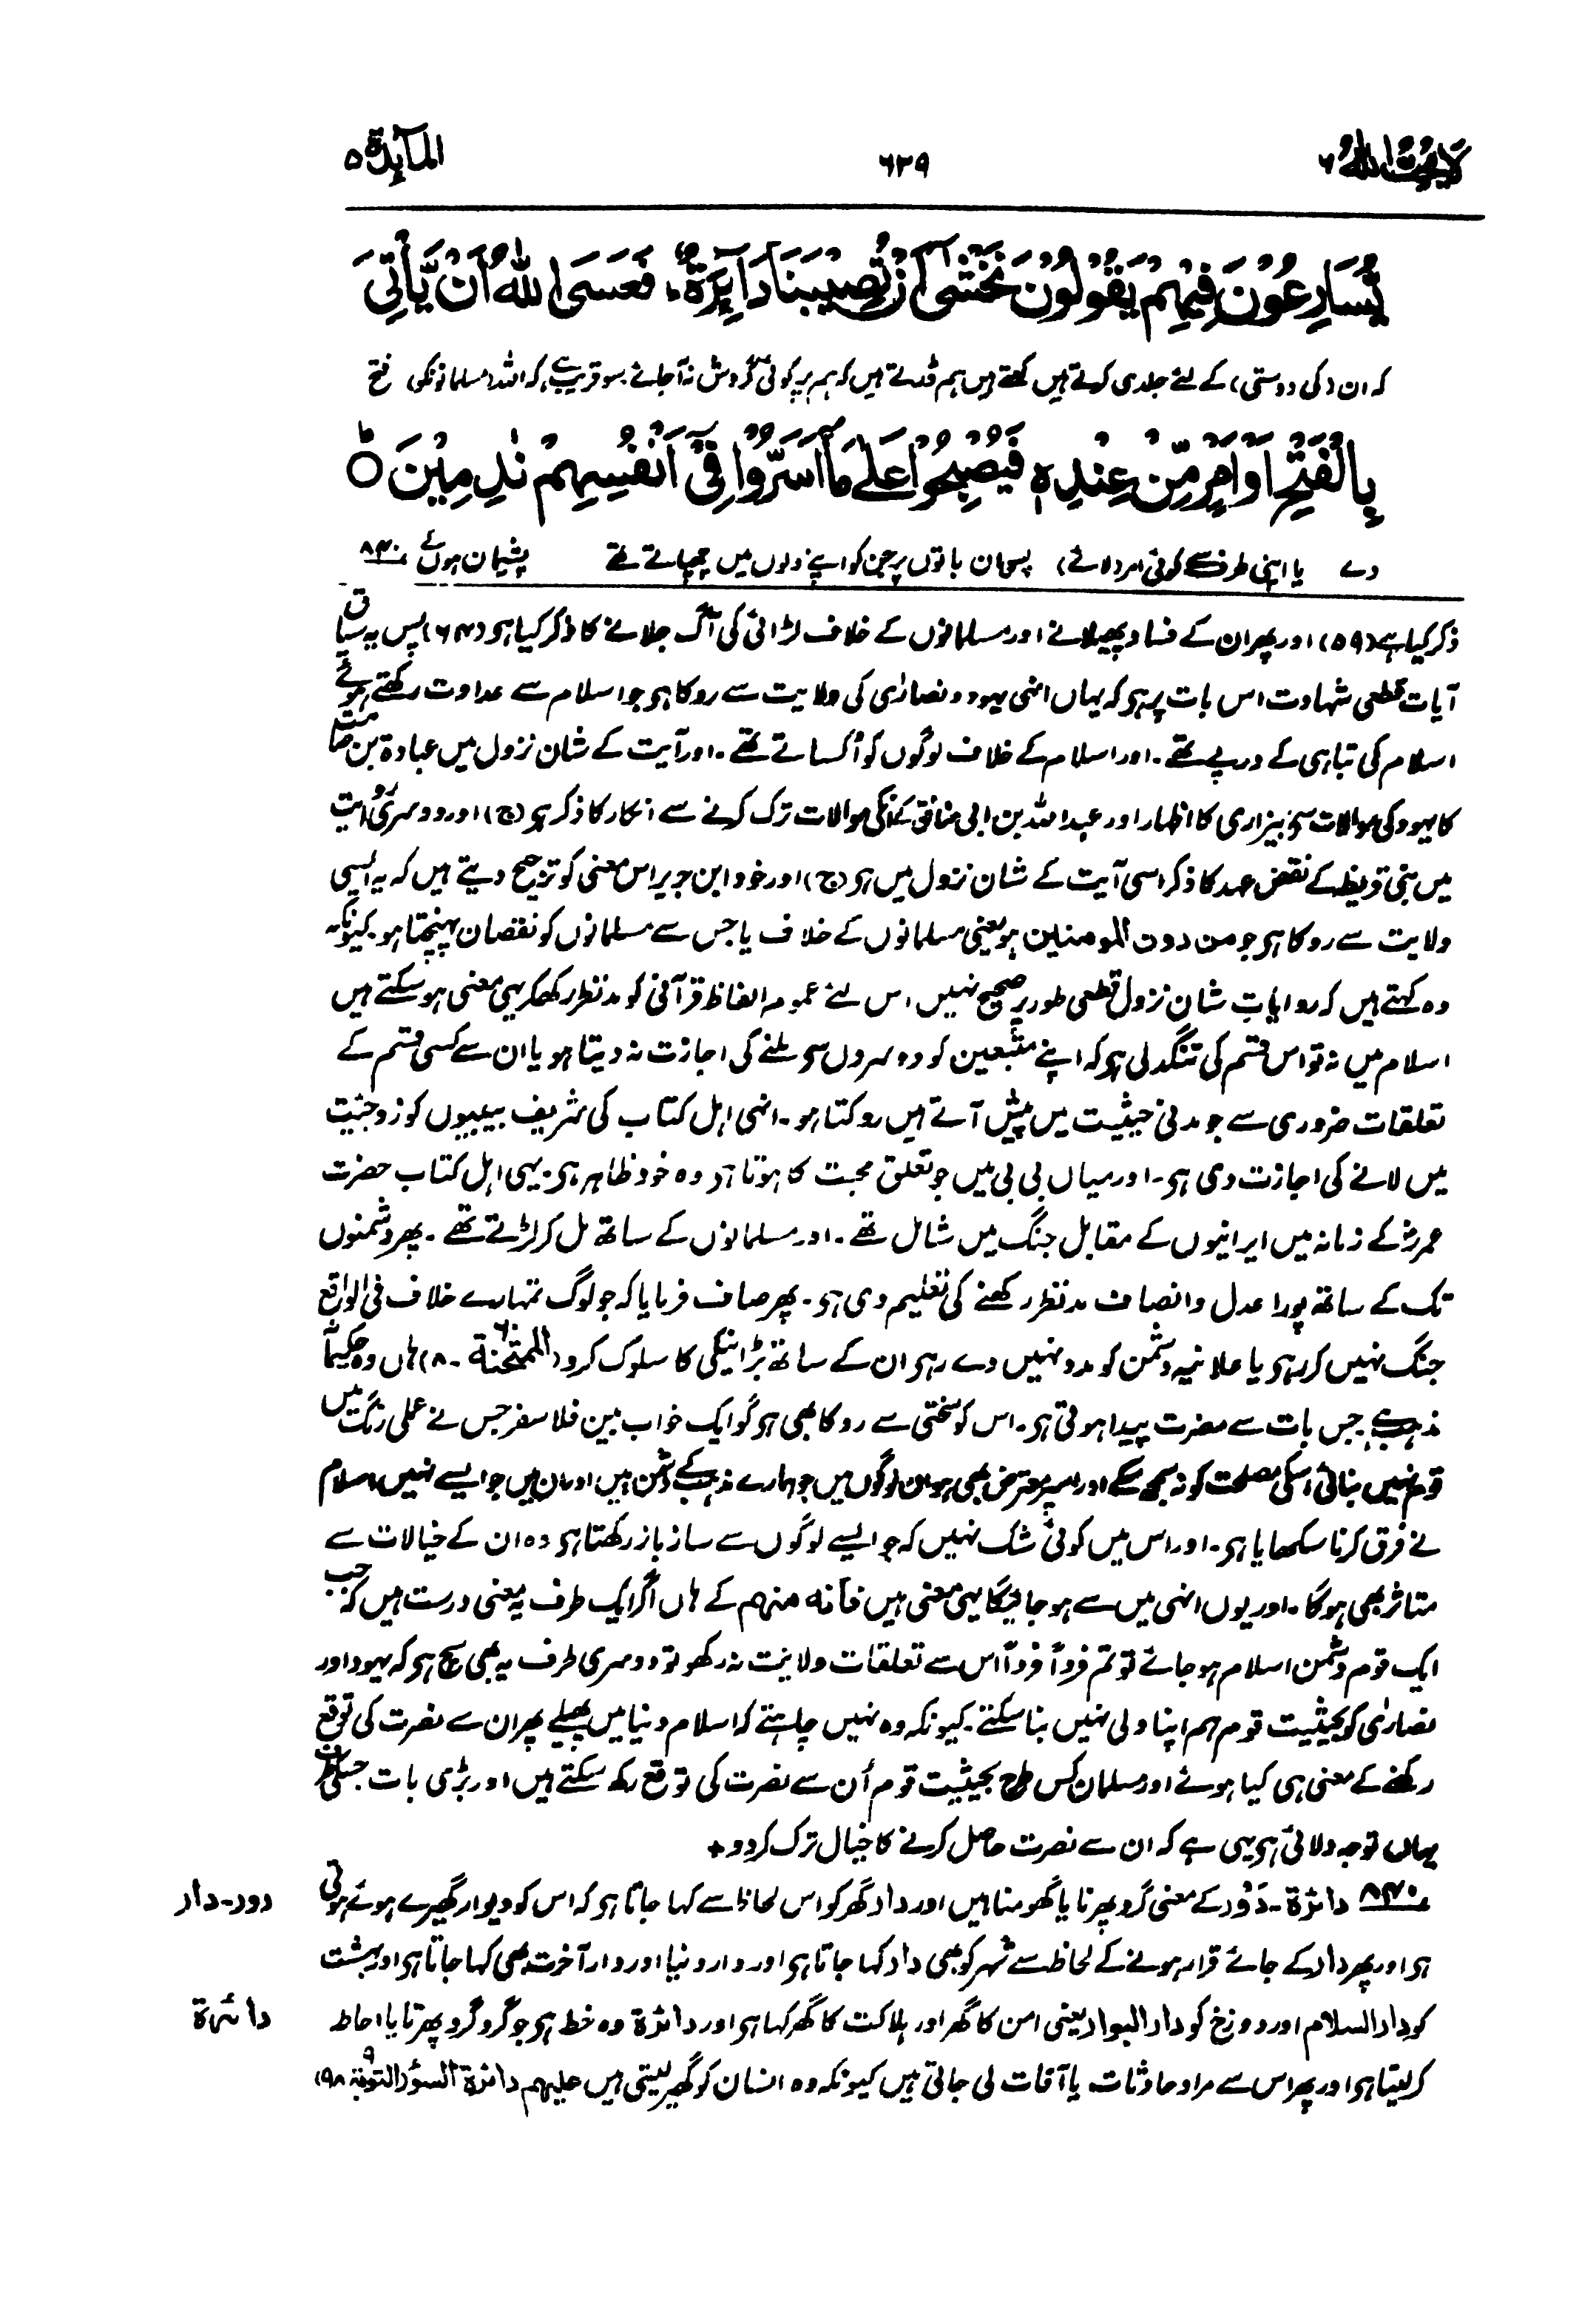 لَا يُحِبُّ اللّٰهُ ۶
۶۳۹
المآئدة ۵
يُّسَارِعُوْنَ فِيْهِمْ يَقُوْلُوْنَ نَخْشٰٓى اَنْ تُصِيْبَنَا دَآئِرَةٌ ؕ فَعَسَى اللّٰهُ اَنْ يَّاْتِيَ
کہ ان (کی دوستی) کے لئے جلدی کرتے ہیں کہتے ہیں ہم ڈرتے ہیں کہ ہم پر کوئی گردش نہ آجائے سو قریب ہے کہ اللہ مسلمانونکی فتح
بِالْفَتْحِ اَوْ اَمْرٍ مِّنْ عِنْدِهٖ فَيُصْبِحُوْا عَلٰى مَآ اَسَرُّوْا فِيْٓ اَنْفُسِهِمْ نٰدِمِيْنَ ۝ؕ
دے یا اپنی طرف سے کوئی امر (لائے) پس ان باتوں پر جن کو اپنے دلوں میں چھپاتے تھے پشیمان ہوں گے ۸۴۰
ذکر کیا ہے (۵۹) اور پھر ان کے فساد پھیلانے اور مسلمانوں کے خلاف لڑائی کی آگ جلانے کا ذکر کیا ہو (۶۴) پس یہ سیاق
آیات قطعی شہادت اس بات پر ہو کہ یہاں انہی یہود و نصارٰی کی ولایت سے روکا ہو جو اسلام سے عداوت رکھتے ہوئے
اسلام کی تباہی کے درپے تھے۔ اور اسلام کے خلاف لوگوں کو اُکساتے تھے۔ اور آیت کے شان نزول میں عبادۃ بن صامت
کا یہود کی موالات سے بیزاری کا اظہار اور عبداللہ بن ابی منافق کے انکی موالات ترک کرنے سے انکار کا ذکر ہو (ج) اور دوسری روایت
میں بنی قریظہ کے نقض عہد کا ذکر اسی آیت کے شان نزول میں ہو (ج) اور خود ابن جریر اس معنی کو ترجیح دیتے ہیں کہ یہ ایسی
ولایت سے روکا ہو جو من دون المومنین ہو یعنی مسلمانوں کے خلاف یا جس سے مسلمانوں کو نقصان پہنچتا ہو کیونکہ
وہ کہتے ہیں کہ روایات شان نزول قطعی طور پر صحیح نہیں اس لئے عموم الفاظ قرآنی کو مدنظر رکھکر یہی معنی ہو سکتے ہیں
اسلام میں نہ تو اس قسم کی تنگدلی ہو کہ اپنے متبعین کو دوسروں سے ملنے کی اجازت نہ دیتا ہو یا ان سے کسی قسم کے
تعلقات ضروری سے جو مدنی حیثیت میں پیش آتے ہیں روکتا ہو۔ انہی اہل کتاب کی شریف بیبیوں کو زوجیت
میں لانے کی اجازت دی ہو۔ اور میاں بی بی میں جو تعلق محبت کا ہوتا ہو وہ خود ظاہر ہو۔ یہی اہل کتاب حضرت
عمرؓ کے زمانہ میں ایرانیوں کے مقابل جنگ میں شامل تھے۔ اور مسلمانوں کے ساتھ مل کر لڑتے تھے۔ پھر دشمنوں
تک کے ساتھ پورا عدل و انصاف مدنظر رکھنے کی تعلیم دی ہو۔ پھر صاف فرمایا کہ جو لوگ تمہارے خلاف فی الواقع
جنگ نہیں کر رہو یا علانیہ دشمن کو مدد نہیں دے رہو ان کے ساتھ بڑا نیکی کا سلوک کرو (الممتحنة ۶۰-۸) ہاں وہ حکیمانہ
مذہب ہے جس بات سے مضرت پیدا ہوتی ہو۔ اس کو سختی سے روکا بھی ہو گو ایک خواب بین فلاسفر جس نے عملی رنگ میں
قوم نہیں بنائی اسکی مصلحت کو نہ سمجھ سکے اور اسپر معترض بھی ہو ان لوگوں میں جو ہمارے مذہب کے دشمن ہیں اور ان میں جو ایسے نہیں اسلام
نے فرق کرنا سکھایا ہو۔ اور اس میں کوئی شک نہیں کہ جو ایسے لوگوں سے ساز باز رکھتا ہو وہ ان کے خیالات سے
متاثر بھی ہوگا۔ اور یوں انہی میں سے ہو جائیگا یہی معنی ہیں فانہ منهم کے ہاں اگر ایک طرف یہ معنی درست ہیں کہ جب
ایک قوم دشمن اسلام ہو جائے تو تم فرداً فرداً اس سے تعلقات ولایت نہ رکھو تو دوسری طرف یہ بھی سچ ہو کہ یہود اور
نصارٰی کو بحیثیت قوم ہم اپنا ولی نہیں بنا سکتے۔ کیونکہ وہ نہیں چاہتے کہ اسلام دنیا میں پھیلے پھر ان سے نصرت کی توقع
رکھنے کے معنی ہی کیا ہوئے اور مسلمان کس طرح بحیثیت قوم اُن سے نصرت کی توقع رکھ سکتے ہیں اور بڑی بات جسکی طرف
یہاں توجہ دلائی ہو یہی ہے کہ ان سے نصرت حاصل کرنے کا خیال ترک کر دو +
۸۴۰ دائرة۔ دَوْر کے معنی گرد پھرنا یا گھومنا ہیں اور دار گھر کو اس لحاظ سے کہا جاتا ہو کہ اس کو دیوار گھیرے ہوئے ہوتی
دور۔ دار
ہو اور پھر دار کے جائے قرار ہونے کے لحاظ سے شہر کو بھی دار کہا جاتا ہو اور دار دنیا اور دار آخرت بھی کہا جاتا ہو اور بہشت
کو دار السلام اور دوزخ کو دار البوار یعنی امن کا گھر اور ہلاکت کا گھر کہا ہو اور دائرة وہ خط ہو جو گرد گرد پھرتا یا احاطہ
دائرة
کر لیتا ہو اور پھر اس سے مراد حادثات یا آفات لی جاتی ہیں کیونکہ وہ انسان کو گھیر لیتی ہیں علیهم دائرة السوء (التوبة ۹-۹۸)